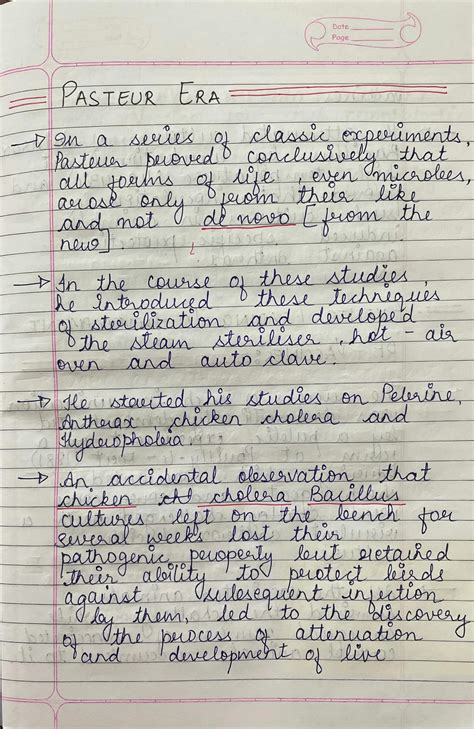 Date
Page
PASTEUR ERA
→ In a series of classic experiments,
Pasteur proved conclusively that
all forms of life, even microbes,
arose only from their like
and not de novo [from the
new].
→ In the course of these studies,
he introduced these techniques
of sterilization and developed
the steam steriliser, hot-air
oven and auto clave.
→ He started his studies on Pelerine,
Anthrax, chicken cholera and
Hydrophobia
→ An accidental observation that
chicken cholera Bacillus
cultures left on the bench for
several weeks lost their
pathogenic property but retained
their ability to protect birds
against subsequent injection
by them, led to the discovery
of the process of attenuation
and development of live